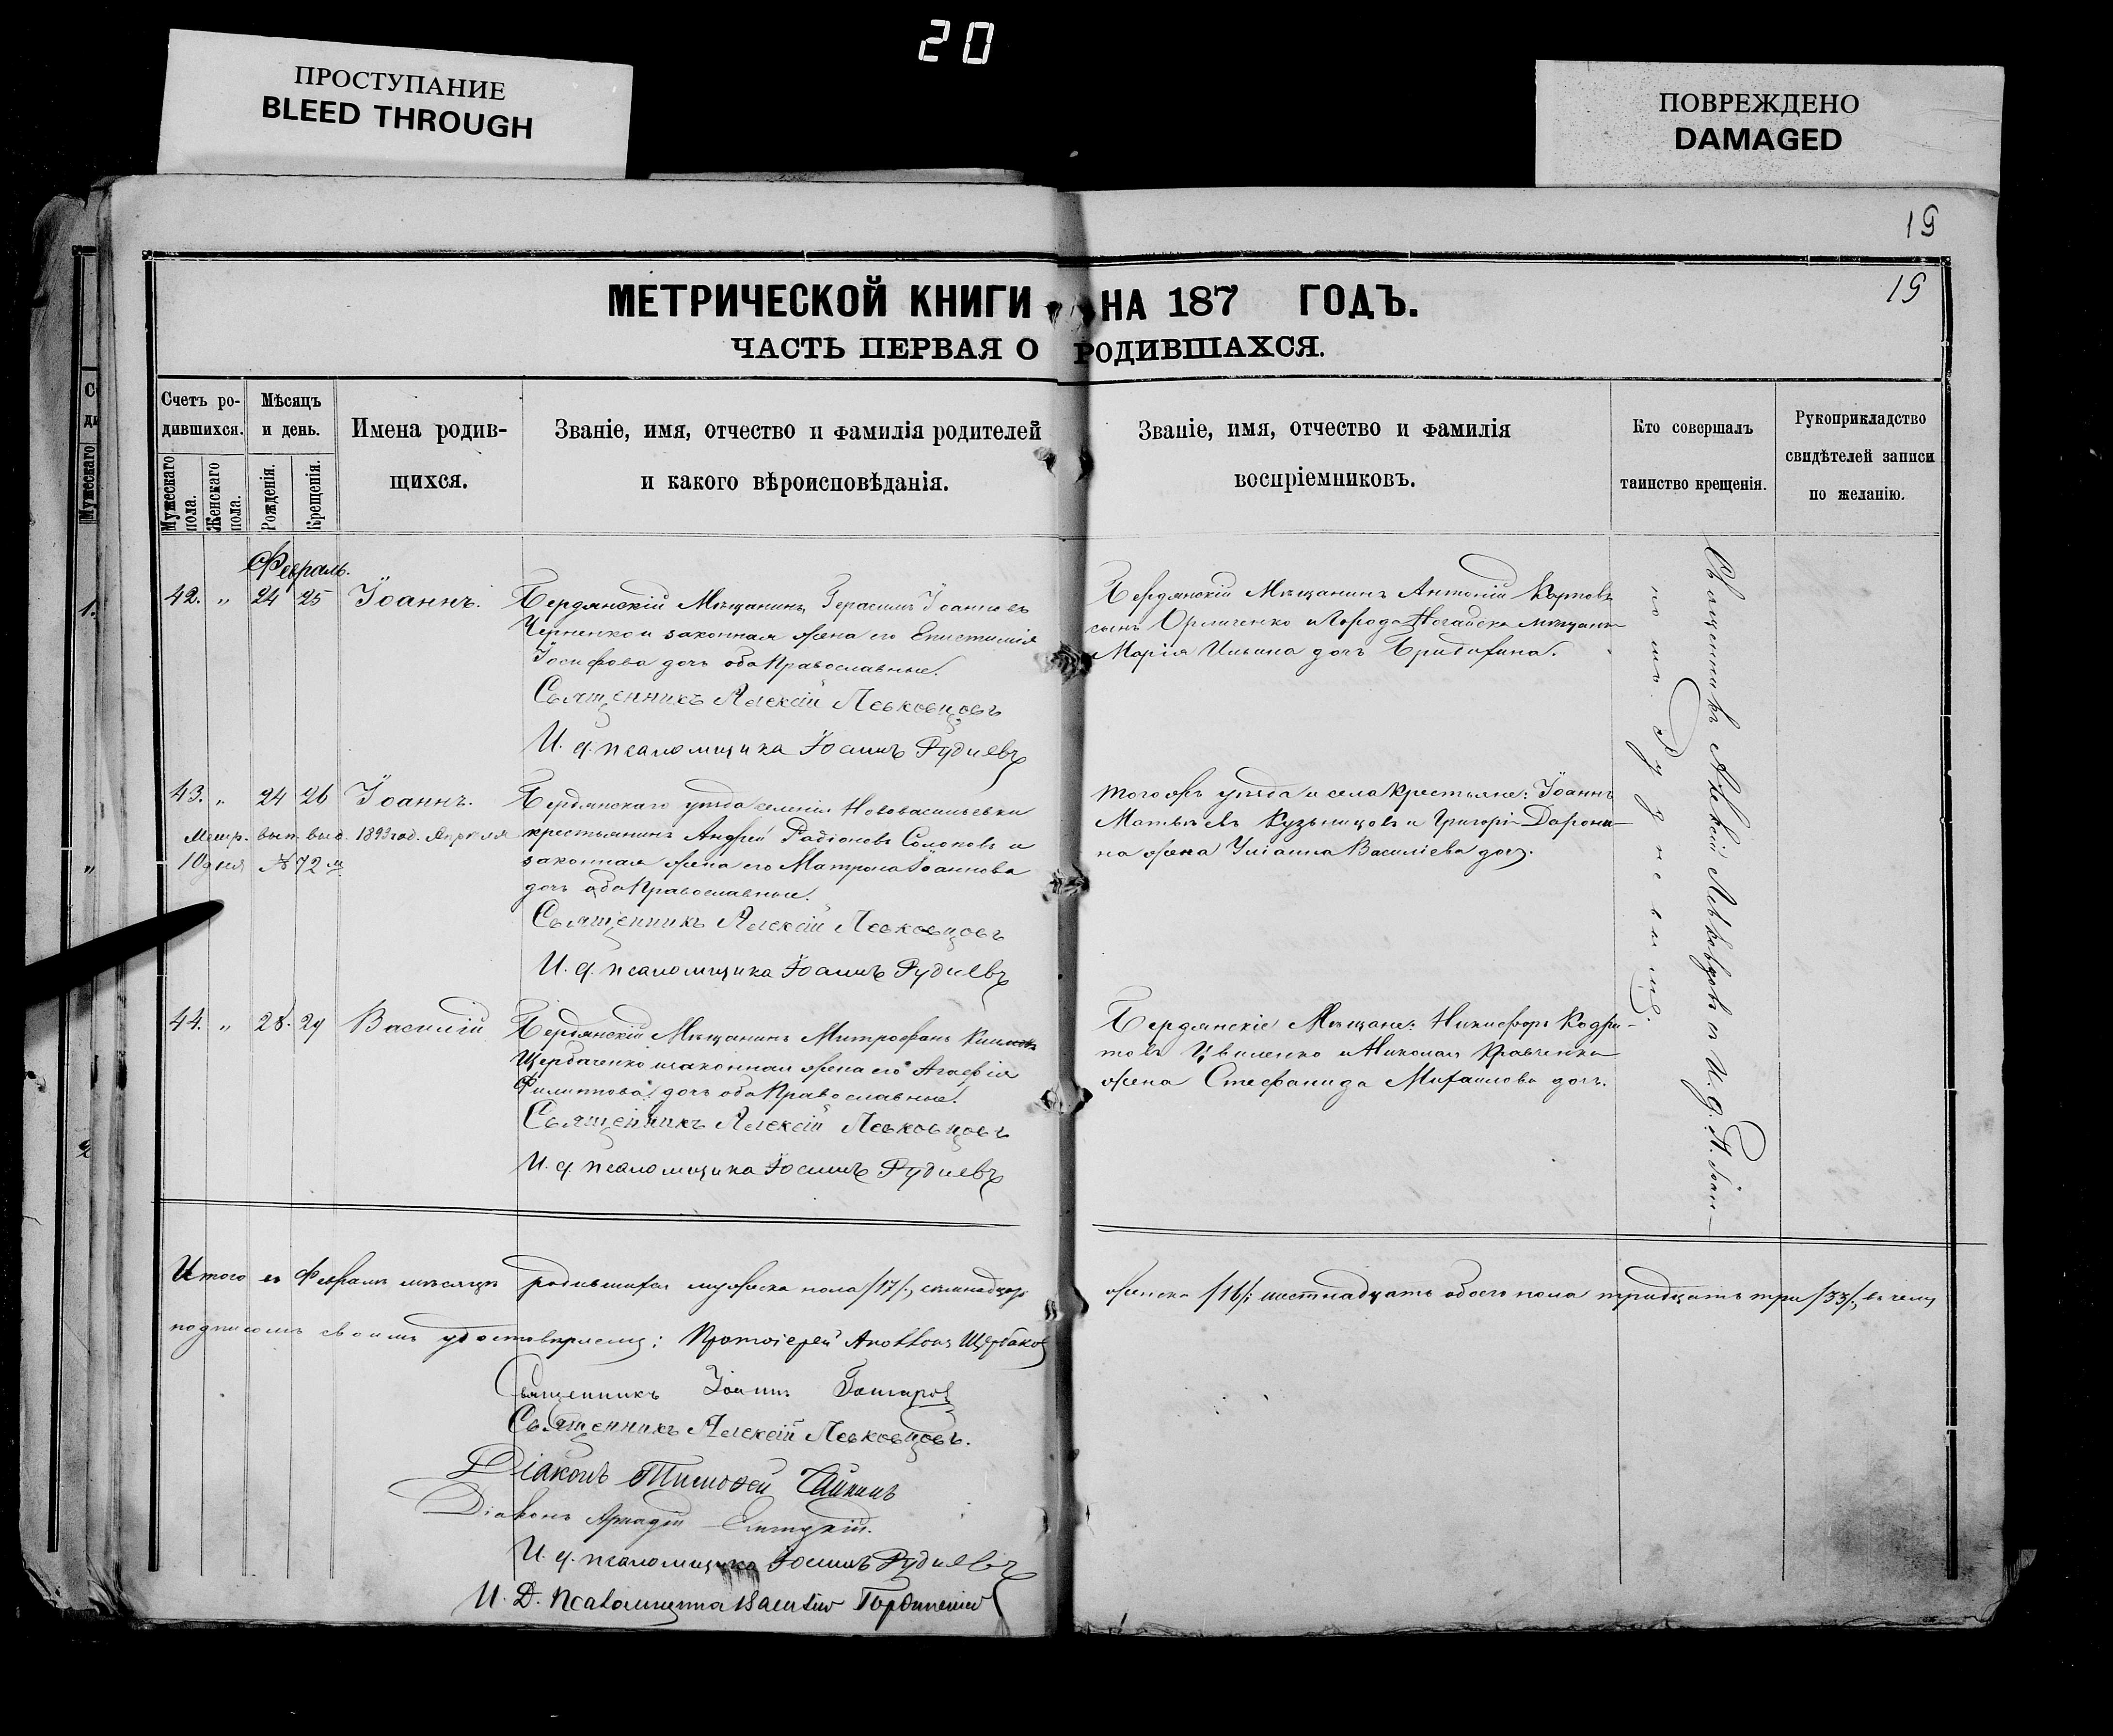 20
ПРОСТУПАНИЕ
BLEED THROUGH
ПОВРЕЖДЕНО
DAMAGED
19
19
МЕТРИЧЕСКОЙ КНИГИ НА 187 ГОДЪ.
ЧАСТЬ ПЕРВАЯ О РОДИВШАХСЯ.
Счетъ ро-
дившихся.
Мужескаго пола.
Женскаго пола.
Мѣсяцъ
и день.
Рожденія.
Крещенія.
Имена родив-
щихся.
Званіе, имя, отчество и фамилія родителей
и какого вѣроисповѣданія.
Званіе, имя, отчество и фамилія
воспріемниковъ.
Кто совершалъ
таинство крещенія.
Рукоприкладство
свидѣтелей записи
по желанію.
Февраль.
42. „ 24 25 Іоаннъ.
Бердянскій Мѣщанинъ Герасимъ Іоанновъ
Черненко и законная жена его Епистимія
Іосифова дочь оба Православные.
Священникъ Алексій Левковцовъ
И. д. псаломщика Іоаннъ Рудневъ
Бердянскій Мѣщанинъ Антоній Карповъ
сынъ и города Ногайска мѣщан-
Марія Ильина дочь
43. „ 24 26 Іоаннъ.
Бердянскаго уѣзда селенія Нововасильевки
крестьянинъ Андрей Радіоновъ и
законная жена его Матрона Іоаннова
дочь оба Православные.
Священникъ Алексій Левковцовъ
И. д. псаломщика Іоаннъ Рудневъ
Метр. вып. выд. год.
№ 72
того жъ уѣзда и села крестьяне: Іоаннъ
Матвѣевъ Кузнецовъ и Григорія Дорони-
на жена Уліанна Василіева дочь.
44. „ 28. 29 Василій
Бердянскій Мѣщанинъ Митрофанъ
Щербаченко и законная жена его Агафія
Филиппова дочь оба Православные.
Священникъ Алексій Левковцовъ
И. д. псаломщика Іоаннъ Рудневъ
Бердянскіе Мѣщане: Никифоръ Кодра-
товъ Цвиленко и Николая Кравченка
жена Стефанида Михаилова дочь.
Священникъ Алексій Левковцовъ и И. д. П. Іоан-
номъ Рудневымъ.
Итого въ Февралѣ мѣсяцѣ родившихся мужеска пола /17/, семнадцать
женска /16/ шестнадцать обоего пола тридцать три /33/, въ чемъ
подписомъ своимъ удостовѣряемъ: Протоіерей Аполлонъ Щербаковъ
Священникъ Іоаннъ Гончаровъ
Священникъ Алексій Левковцовъ.
Діаконъ Тимоѳей Чайкинъ
Діаконъ Аркадій
И. д. псаломщика Іоаннъ Рудневъ
И. Д. Псаломщика